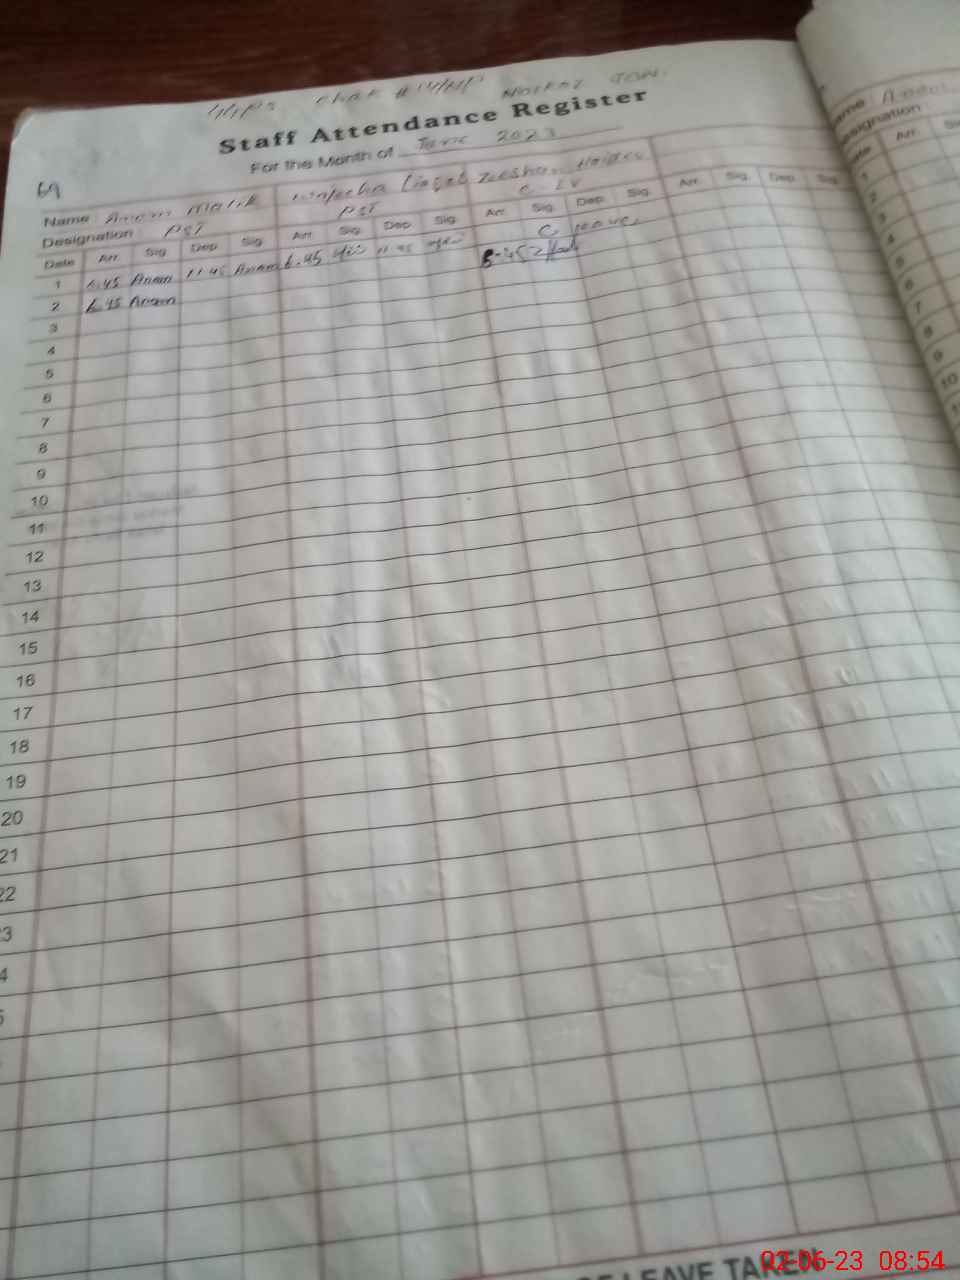 Staff Attendance Register
For the Month of June 2023
69
Name Anam Malik Zeeshan Haider
Designation PST PST C. IV
Date Arr. Sig. Dep. Sig. Arr. Sig. Dep. Sig. Arr. Sig. Dep. Sig. Arr. Sig. Dep. Sig.
1 6.45 Anam 11.45 Anam 6.45 11.45 C. leave
2 6.45 Anam
3
4
5
6
7
8
9
10
11
12
13
14
15
16
17
18
19
20
21
22
3
4
5
LEAVE TAKEN
Designation
Arr.
1
2
3
4
5
6
7
8
9
10
02-06-23 08:54